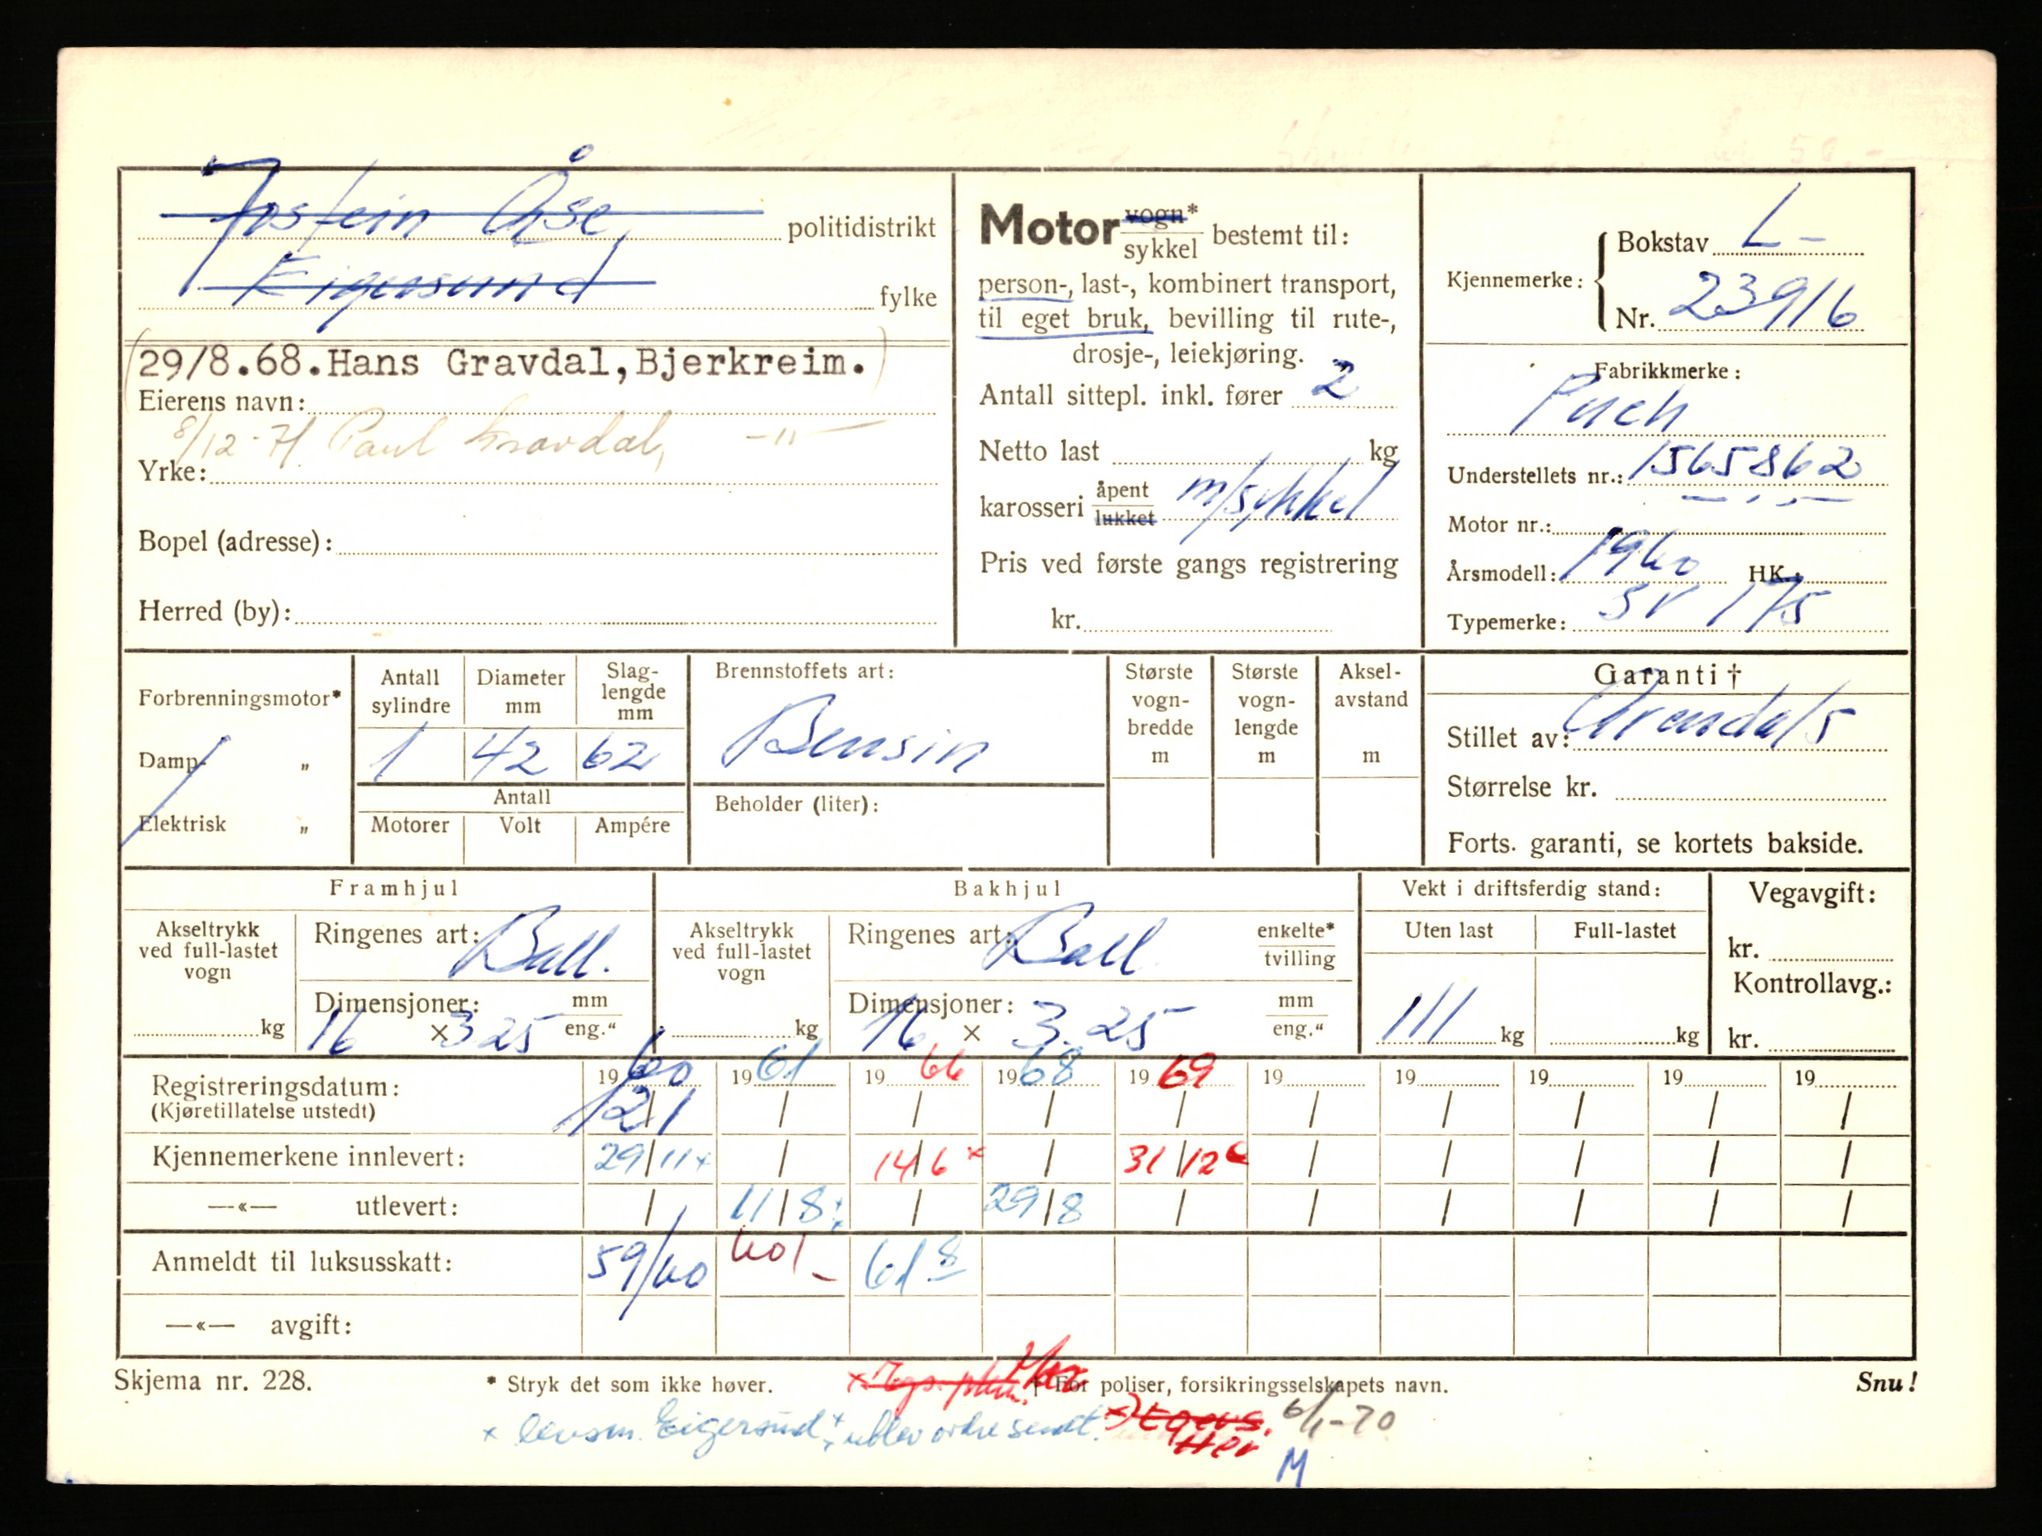 Jostein Åse, politidistrikt
Eigersund fylke
29/8.68. Hans Gravdal, Bjerkreim.
Eierens navn:
8/12-71 Paul Gravdal, -"-
Yrke:
Bopel (adresse):
Herred (by):
Motor vogn* sykkel bestemt til:
person-, last-, kombinert transport,
til eget bruk, bevilling til rute-,
drosje-, leiekjøring.
Antall sittepl. inkl. fører 2
Netto last kg
karosseri åpent lukket m/sykkel
Pris ved første gangs registrering
kr.
Kjennemerke: Bokstav L-
Nr. 23916
Fabrikkmerke:
Puch
Understellets nr.: 1565862
Motor nr.: -"-
Årsmodell: 1960 HK.:
Typemerke: SV 175
Forbrenningsmotor*
Damp- "
Elektrisk "
Antall sylindre Diameter mm Slag-lengde mm
1 42 62
Antall
Motorer Volt Ampére
Brennstoffets art:
Bensin
Beholder (liter):
Største vogn-bredde m
Største vogn-lengde m
Aksel-avstand m
Garanti †
Stillet av: Arendals
Størrelse kr.
Forts. garanti, se kortets bakside.
Framhjul
Akseltrykk ved full-lastet vogn kg
Ringenes art: Ball.
Dimensjoner: mm
16 x 3 25 eng."
Bakhjul
Akseltrykk ved full-lastet vogn kg
Ringenes art: Ball enkelte* tvilling
Dimensjoner: mm
16 x 3.25 eng."
Vekt i driftsferdig stand:
Uten last Full-lastet
111 kg kg
Vegavgift:
kr.
Kontrollavg.:
kr.
Registreringsdatum: 1960 1961 1966 1968 1969 19 19 19 19 19
(Kjøretillatelse utstedt) / / / / / / / / /
Kjennemerkene innlevert: 29/11x / 14/6x / 31/12 / / / / /
—«— utlevert: / 11/8 / 29/8 / / / / / /
Anmeldt til luksusskatt: 59/60 601- 61 8
—«— avgift:
Skjema nr. 228. * Stryk det som ikke høver. † For poliser, forsikringsselskapets navn. Snu!
x lensm. Eigersund utlev ordre sendt. x) Egers. 6/1-70
Her
M